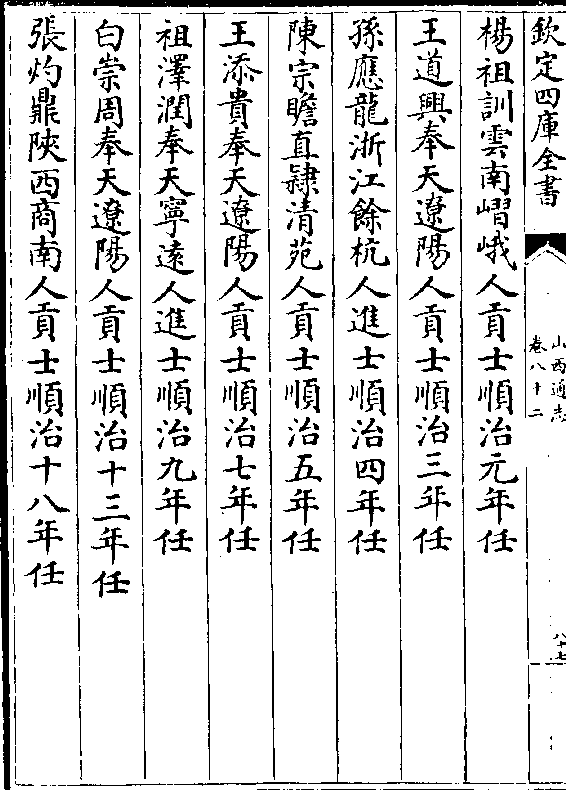 欽定四庫全書
山西通志
卷八十二
八十七
楊祖訓雲南嶍峨人貢士順治元年任
王道興奉天遼陽人貢士順治三年任
孫應龍浙江餘杭人進士順治四年任
陳宗瞻直隸清苑人貢士順治五年任
王添貴奉天遼陽人貢士順治七年任
祖澤潤奉天寧遠人進士順治九年任
白崇周奉天遼陽人貢士順治十三年任
張灼鼎陝西商南人貢士順治十八年任